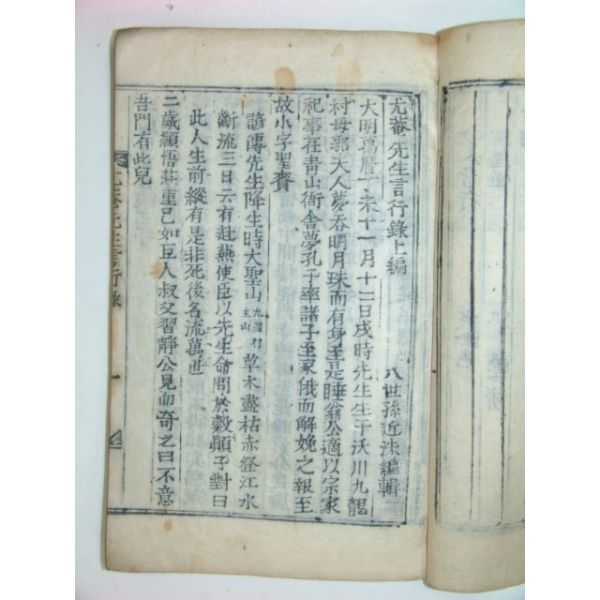 尤菴先生言行錄上編
八世孫近洙編輯
大明萬曆丁未十一月十二日戌時先生生于沃川九龍
村母郭夫人夢吞明月珠而有身至是睡翁公適以宗家
祀事在青山衙舍夢孔子率諸子至家俄而解娩之報至
故小字聖賚
諺傳先生降生時大聖山九龍村主山草木盡枯赤登江水
斷流三日云有赴燕使臣以先生命問於穀顛子對曰
此人生前縱有是非死後名流萬世
二歲穎悟莊重已如巨人叔父習靜公見而奇之曰不意
吾門有此兒
尤菴先生言行錄
一